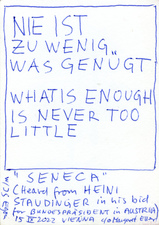 NIE IST
ZU WENIG„
WAS GENÜGT
WHAT IS ENOUGH
IS NEVER TOO
LITTLE
"SENECA"
(Heard from HEINI
STAUDINGER in his bid
for BUNDESPRÄSIDENT in AUSTRIA)
2022 VIENNA